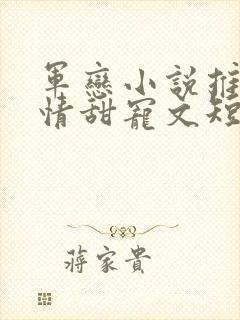 軍戀小說推
情甜寵文短
蔣家貴